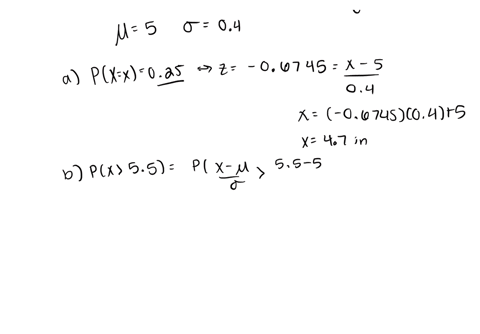 μ = 5 σ = 0.4
a) P(X=x) = 0.25 ↔ z = -0.6745 = x - 5 / 0.4
x = (-0.6745)(0.4)+5
x = 4.7 in
b) P(x > 5.5) = P( x - μ / σ > 5.5 - 5